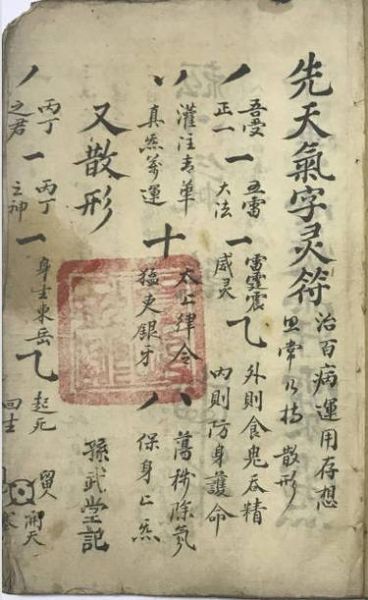 先天氣字灵符
治百病運用存想
常乃持 散形
丿 吾受 正一
一 五雷 大法
一 雷霆震 威灵
乙 外則食鬼吞精 内則防身護命
丷 灌注青華 真炁萬運
十 太上律令 猛吏銀牙
八 蕩秽除氛 保身上炁
又散形
孫武堂記
丿 丙丁 之君
一 丙丁 之神
一 身主東岳
乙 起死 回生
留人 開天